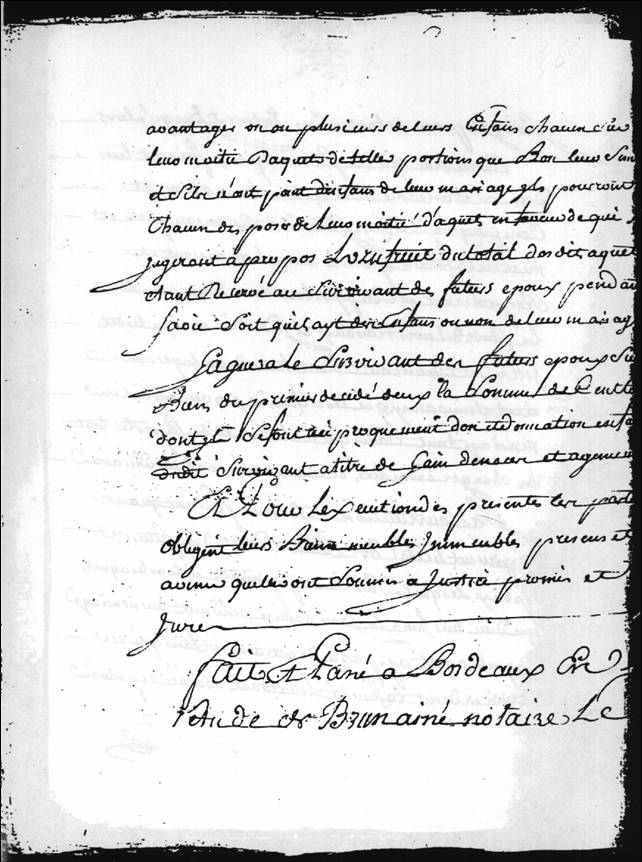 avantager un ou plusieurs de leurs Enfans chacun sur
leur moitié d'aquets de telle portions que Bon leur Sem
et S'ils n'ont point d'enfans de leur mariage ils pourront
chacun disposer de leur moitié d'aquets en faveur de qui
jugeront apropos L'uzufruit du total des dits aquets
etant Reservé au Survivant des futurs epoux pendan
sa vie Soit qu'il ayt des Enfans ou non de leur mariag
Gagnera le Survivant des futurs epoux Su
Biens du premier decedé deux la Somme de Cent
dont ils Se font reciproquement don et donnation en fa
dudit Survivant a titre de Gain de noces et agencem
Et Pour L'execution des presentes les parti
obligent leurs Biens meubles Immeubles presens et
avenir qu'ils ont Soumis a Justice promis et
Juré
fait Et Passé a Bordeaux En
l'étude de Brun ainé notaire Le